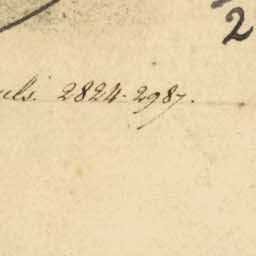 2
uls. 2824-2987.